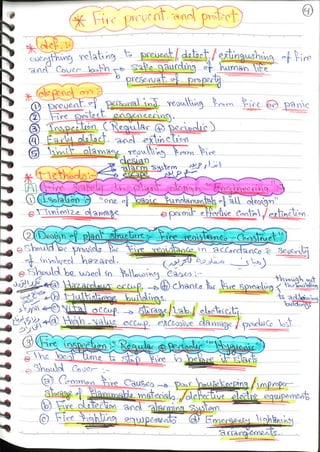 4
* Fire prevent and protect
* def.:
everything relating to prevent/detect/extinguishing of Fire
and cover both → safe gaurding of human life
↳ preservat of property
* depend on:
① prevent of personal inj resulting from fire or panic
② Fire protect engeneering
③ Inspection (Regular & periodic)
④ Early detect and extinction
⑤ limit damage resulting from fire
* Methods:
design
alarm system
escape
A Fire safety in plant design "Engineering"
① Isolation: "one of basic fundamentals of all design"
Minimize damage
permit effective control/extinction
② Design of plant structure: Fire resistance construct"
should be provide the fire resistance in accordance to severity
of involved hazard.
should be used in following cases:-
(a) Hazardous occup. → chance for fire spreading
through out of the building
to adjoining buildings
(b) Multistorage buildings.
(c) Vital occup. → storage/Lab/electricity
(d) High value occup. excessive damage/produce lost
③ Fire inspection: Regular & periodic "Hygienic"
The best time to stop fire is before it starts
should cover:-
(a) Common fire causes → poor housekeeping/improper
storage of flammable materials/defective electric equipements
(b) Fire detection and alarming system
(c) Fire fighting equipements (d) Emergency lightning
arrangements.